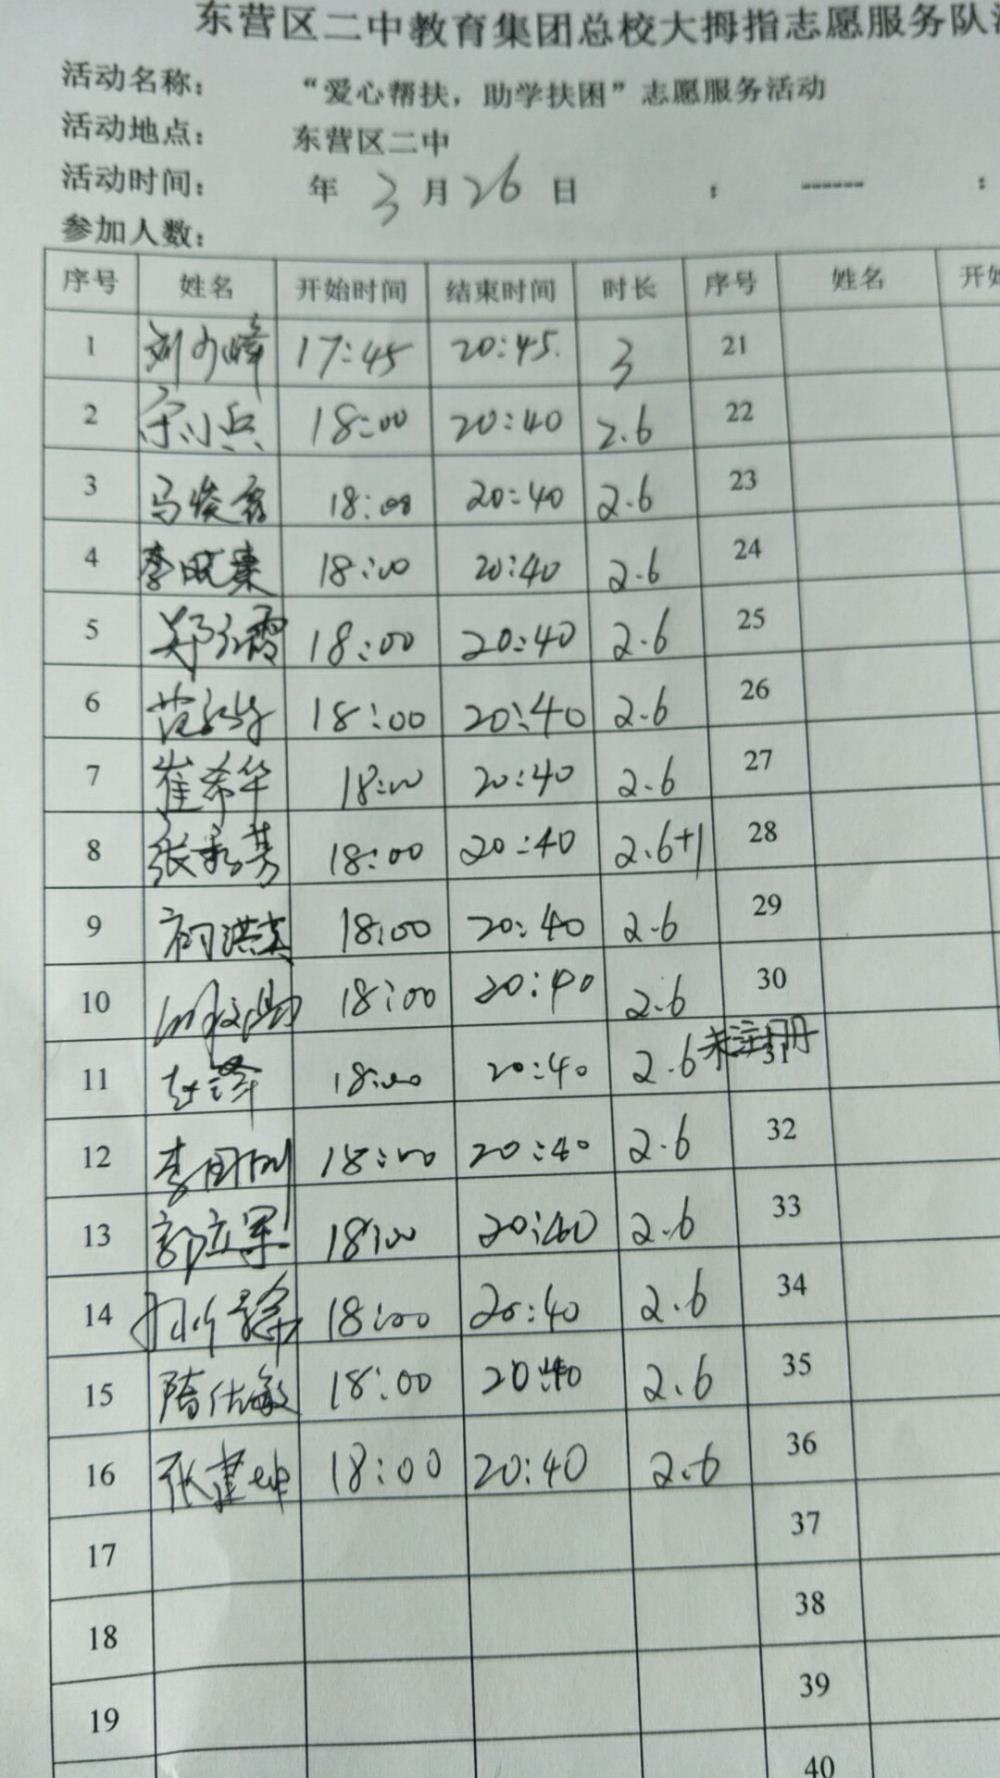 东营区二中教育集团总校大拇指志愿服务队
活动名称： “爱心帮扶，助学扶困”志愿服务活动
活动地点： 东营区二中
活动时间： 年 3 月 26 日 ： ------ ：
参加人数：
序号 姓名 开始时间 结束时间 时长 序号 姓名 开始
1 17:45 20:45 3 21
2 宋小兵 18:00 20:40 2.6 22
3 马俊鑫 18:00 20:40 2.6 23
4 李 18:00 20:40 2.6 24
5 郑 18:00 20:40 2.6 25
6 范 18:00 20:40 2.6 26
7 崔希华 18:00 20:40 2.6 27
8 张秀芳 18:00 20:40 2.6+1 28
9 18:00 20:40 2.6 29
10 18:00 20:40 2.6 30
11 赵泽 18:00 20:40 2.6 未注册 31
12 李国刚 18:00 20:40 2.6 32
13 郭立军 18:00 20:40 2.6 33
14 18:00 20:40 2.6 34
15 隋仕敏 18:00 20:40 2.6 35
16 张建坤 18:00 20:40 2.6 36
17 37
18 38
19 39
40